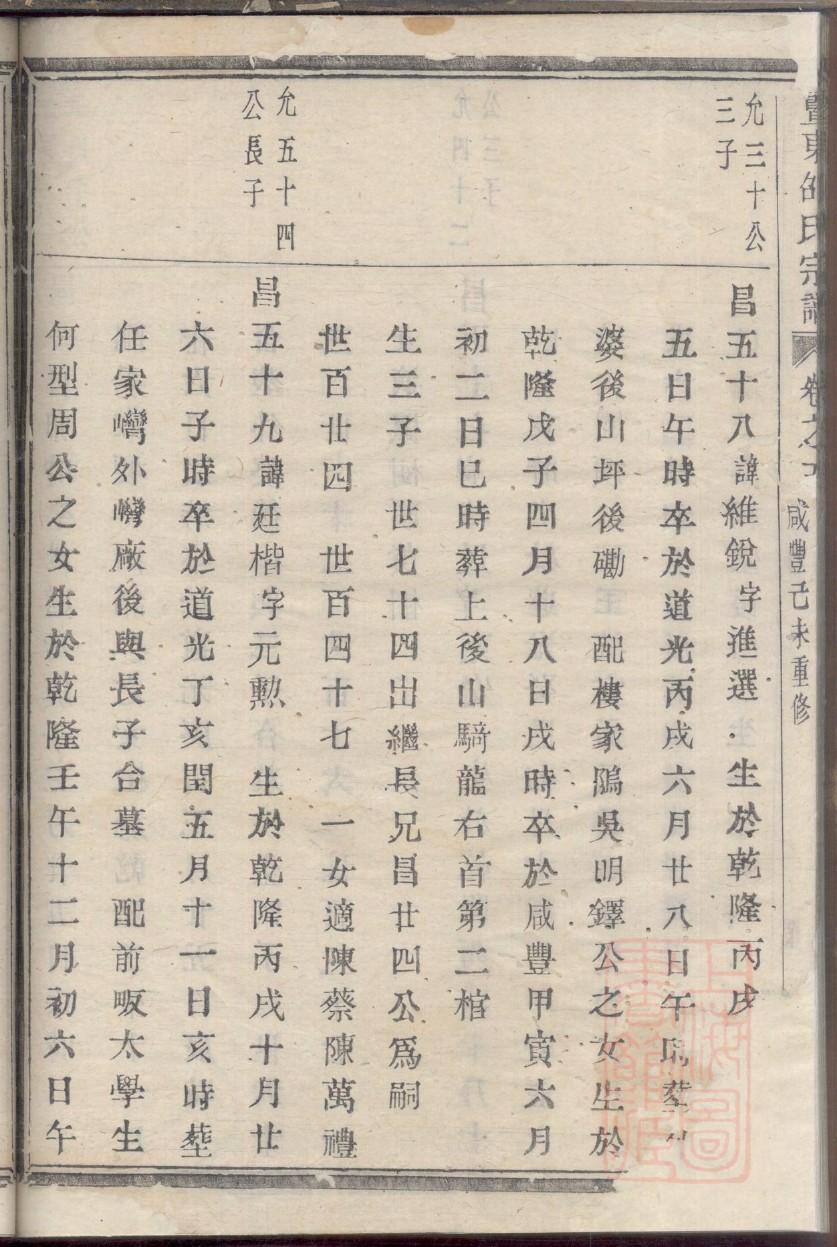 暨東邵氏宗譜 卷之 咸豐己未重修
允三十公
三子
昌五十八諱維銳字進選 生於乾隆丙戌
五日午時卒於道光丙戌六月廿八日午時塟
婆後山坪後磡 配樓家隖吳明鐸公之女生於
乾隆戊子四月十八日戌時卒於咸豐甲寅六月
初二日巳時葬上後山騎龍右首第二棺
生三子 世七十四出繼長兄昌廿四公爲嗣
世百廿四 世百四十七 一女適陳蔡陳萬禮
允五十四
公長子
昌五十九諱廷楷字元勲 生於乾隆丙戌十月廿
六日子時卒於道光丁亥閏五月十一日亥時塟
任家灣外灣廠後與長子合墓 配前畈太學生
何型周公之女生於乾隆壬午十二月初六日午